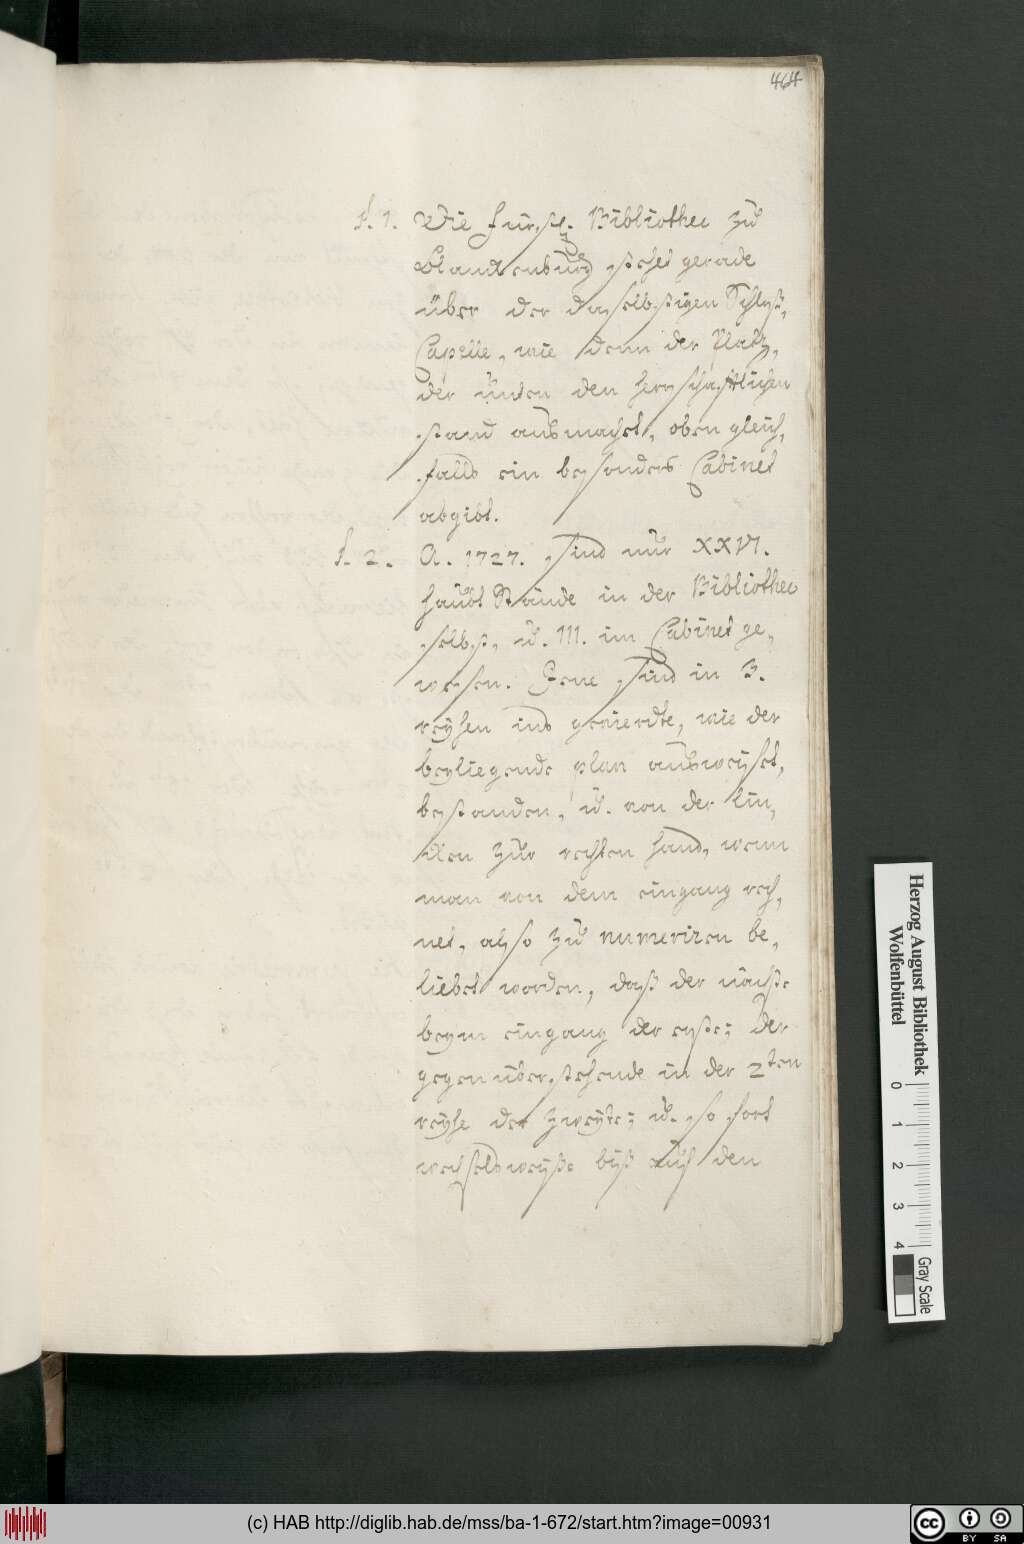 464
§. 1. Die Fürstl. Bibliothec zu
Blankenburg stehet gerade
über der daselbstigen Schloß-
Capelle, wie denn der Platz,
der unten den herrschafftlichen
stand ausmachet, oben gleich-
falls ein besonders Cabinet
abgibt.
§. 2. A. 1727. sind nur XXVI.
haubt Stände in der Bibliothec
selbst, u. III. im Cabinet ge-
wesen. Jene sind in 3.
reyhen ins gevierdte, wie der
beyliegende plan ausweyset,
bestanden, u. von der lin-
ken zur rechten hand, wenn
man von dem eingang rech-
net, also zu numeriren be-
liebet worden, daß der nächste
beym eingang der erste; der
gegenüberstehende in der 2ten
reyhe der zweyte; u. so fort
wechselsweyse biß auf den
Herzog August Bibliothek
Wolfenbüttel
0 1 2 3 4
Gray Scale
(c) HAB http://diglib.hab.de/mss/ba-1-672/start.htm?image=00931
cc BY SA